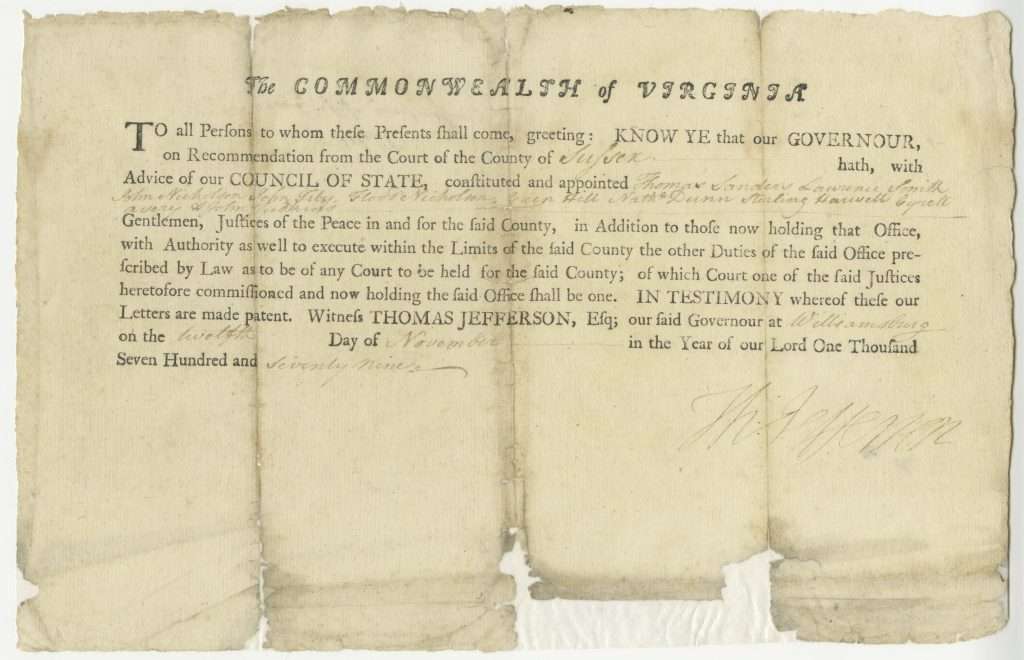 The COMMONWEALTH of VIRGINIA
TO all Perſons to whom theſe Preſents ſhall come, greeting: KNOW YE that our GOVERNOUR,
on Recommendation from the Court of the County of Suſsex hath, with
Advice of our COUNCIL OF STATE, conſtituted and appointed Thomas Sanders Lawrence Smith
John Nicholson Flood Nicholson Hill Nath.l Dunn Harwell
Gentlemen, Juſtices of the Peace in and for the ſaid County, in Addition to thoſe now holding that Office,
with Authority as well to execute within the Limits of the ſaid County the other Duties of the ſaid Office pre-
ſcribed by Law as to be of any Court to be held for the ſaid County; of which Court one of the ſaid Juſtices
heretofore commiſſioned and now holding the ſaid Office ſhall be one. IN TESTIMONY whereof theſe our
Letters are made patent. Witneſs THOMAS JEFFERSON, Eſq; our ſaid Governour at Williamsburg
on the twelfth Day of November in the Year of our Lord One Thouſand
Seven Hundred and Seventy nine
Th: Jefferson